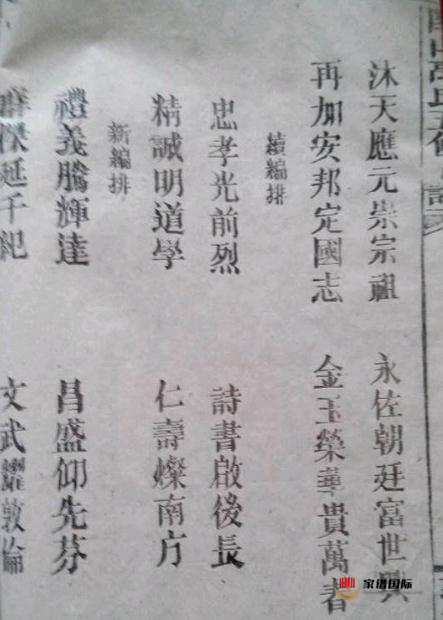 沐天應元崇宗祖 永佐朝廷富世興
再加安邦定國志 金玉榮華貴萬春
續編排
忠孝光前烈 詩書啟後長
精誠明道學 仁壽燦南方
新編排
禮義騰輝達 昌盛仰先芬
群傑延千紀 文武耀敦倫
家谱国际